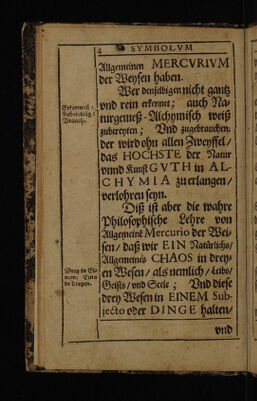 4 SYMBOLVM
Allgemeinen MERCVRIVM
der Weysen haben.
Wer denselbigen nicht gantz
vnd rein erkennet; auch Na-
turgemeß-Alchymisch weiß
zubereyten; Vnd zugebrauchen;
der wird ohn allen Zweyffel/
das HOCHSTE der Natur
vnnd Kunst GVTH in AL-
CHYMIA zu erlangen/
verlohren seyn.
Erkentnuß:
Zubereitūg:
Brauch.
Diß ist aber die wahre
Philosophische Lehre von
Allgemeinē Mercurio der Wei-
sen/ daß wir EIN Natürlichs/
Allgemeines CHAOS in drey-
en Wesen/ als nemlich/ Leibs/
Geists/ vnd Seele; Vnd diese
drey Wesen in EINEM Sub-
jecto oder DINGE halten/
Drey in Ei-
nem: Eins
in dreyen.
vnd